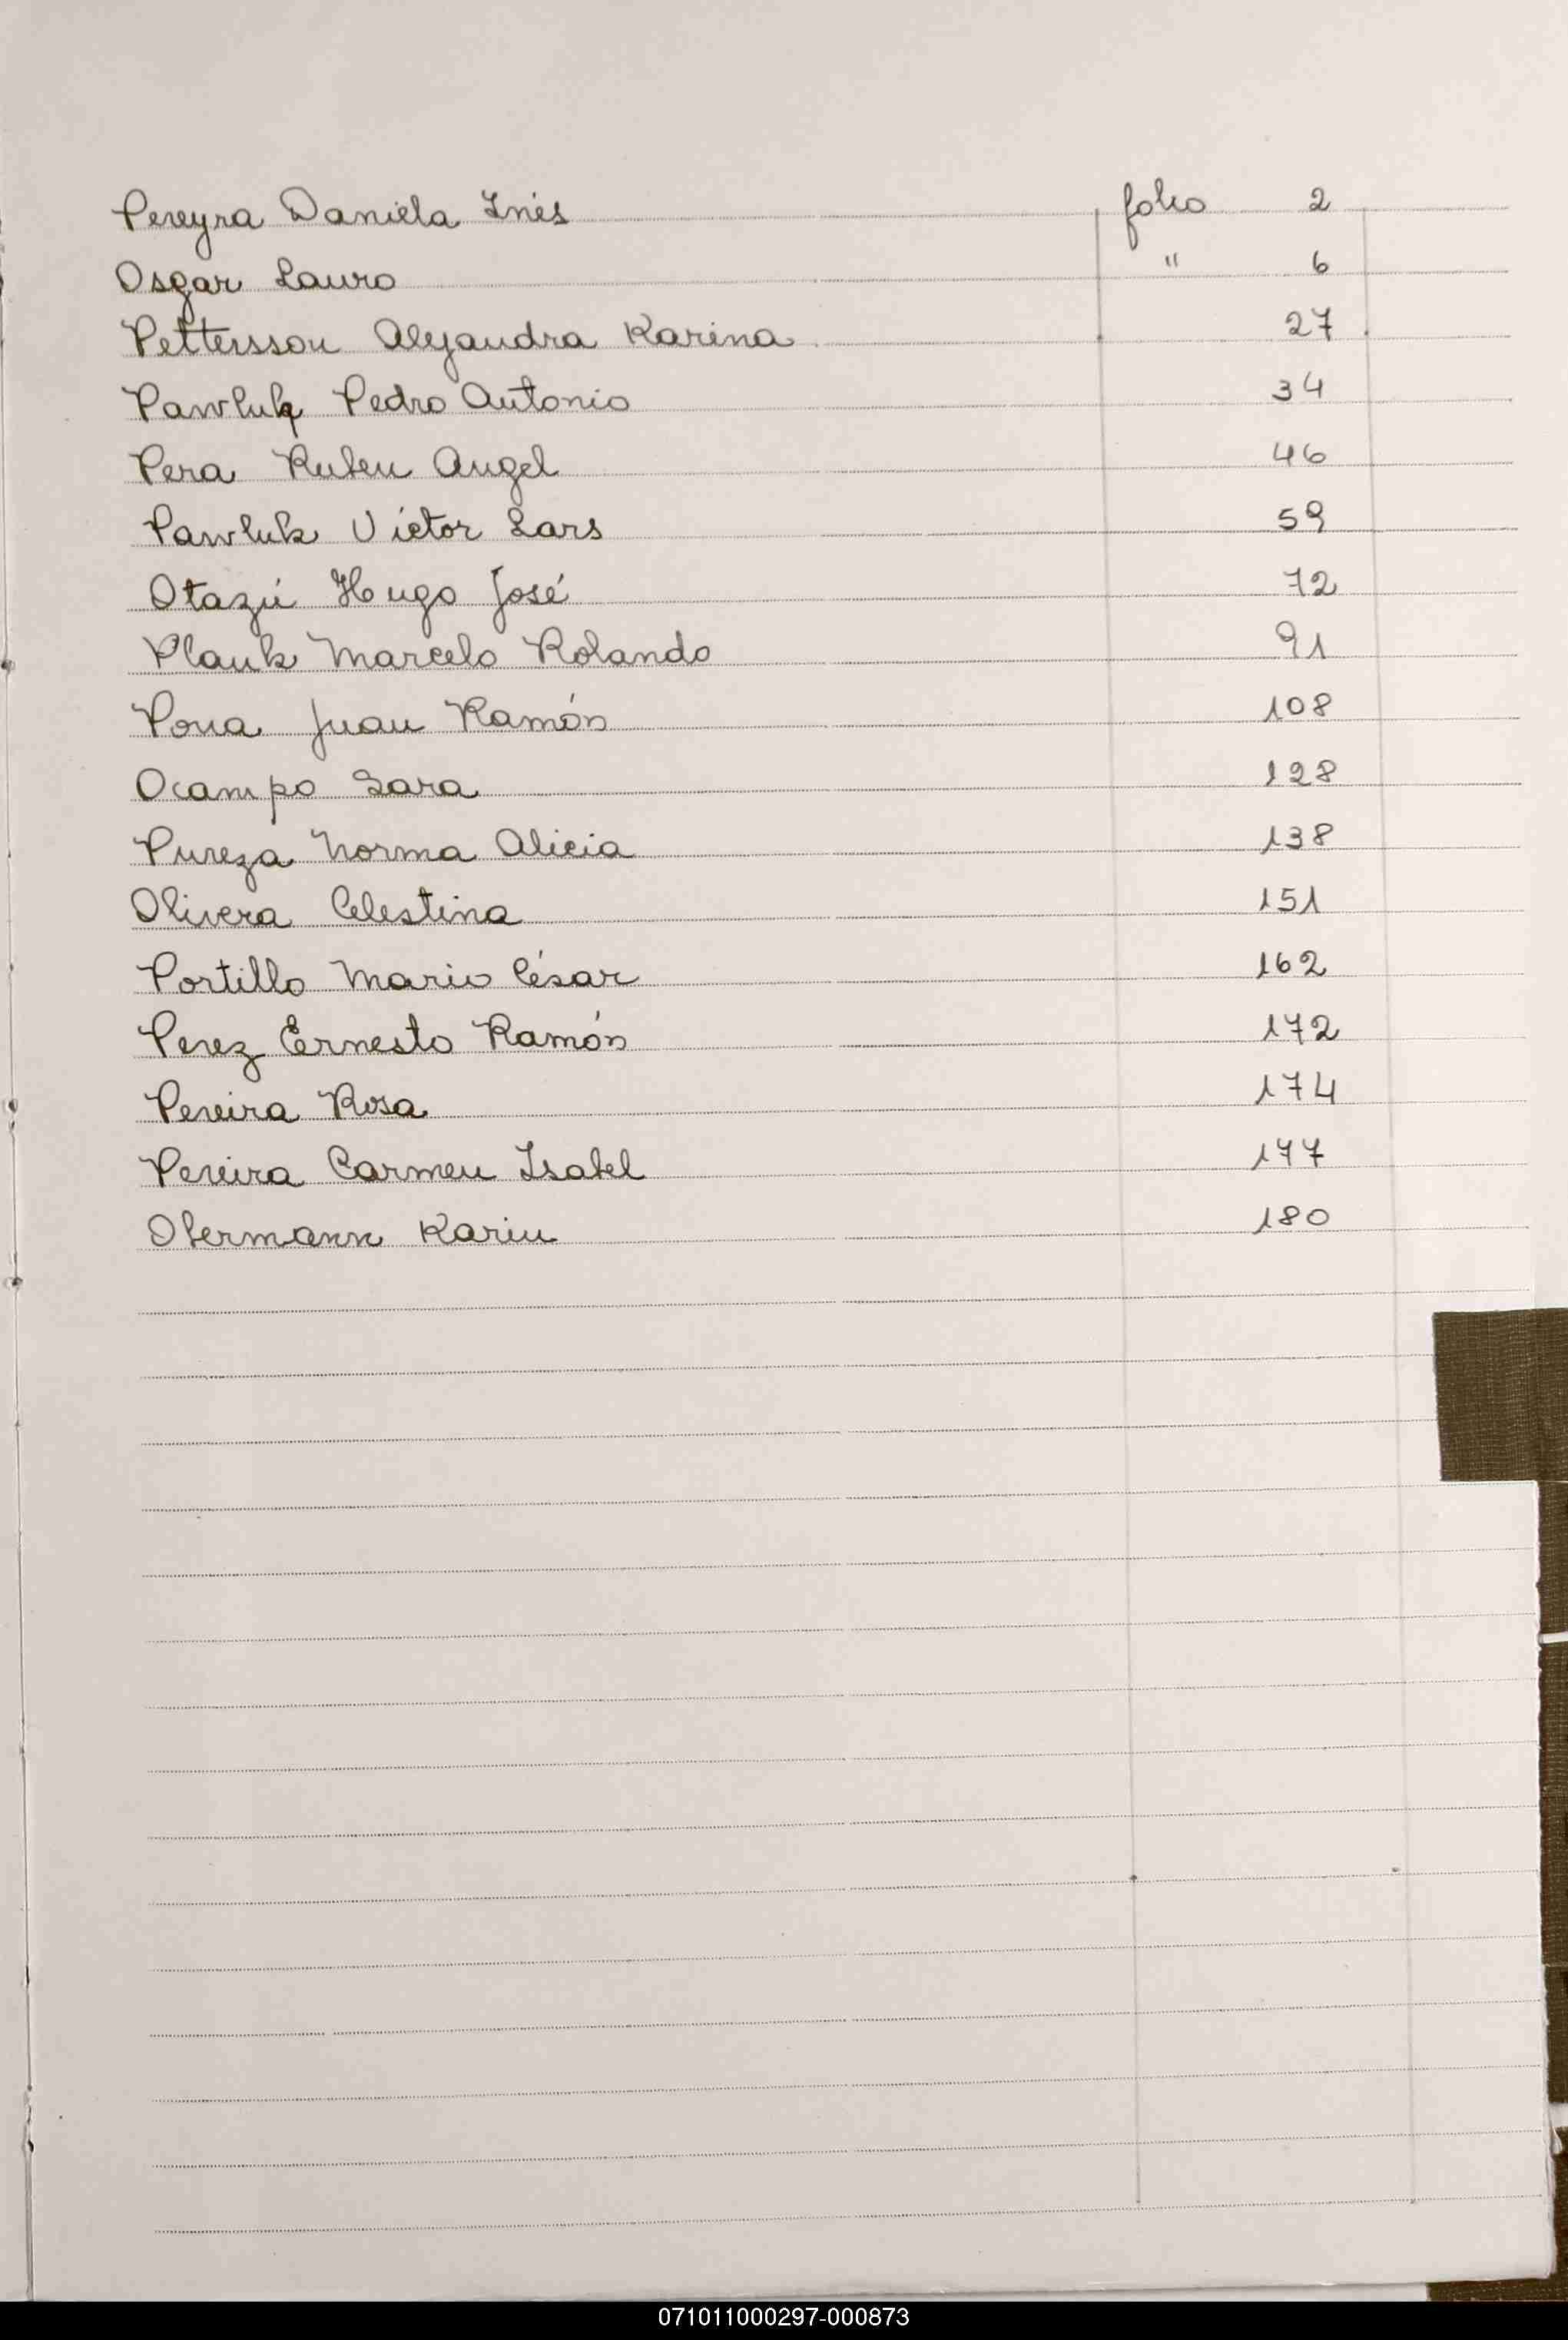 Pereyra Daniela Inés folio 2
Osgar Lauro " 6
Pettersson Alejandra Karina 27
Pawluk Pedro Antonio 34
Pera Ruben Angel 46
Pawluk Victor Lars 59
Otazú Hugo José 72
Plauk Marcelo Rolando 91
Juan Ramón 108
Ocampo Sara 128
Pureza Norma Alicia 138
Olivera Celestina 151
Portillo Mario César 162
Perez Ernesto Ramón 172
Pereira Rosa 174
Pereira Carmen Isabel 177
Obermann Karin 180
071011000297-000873